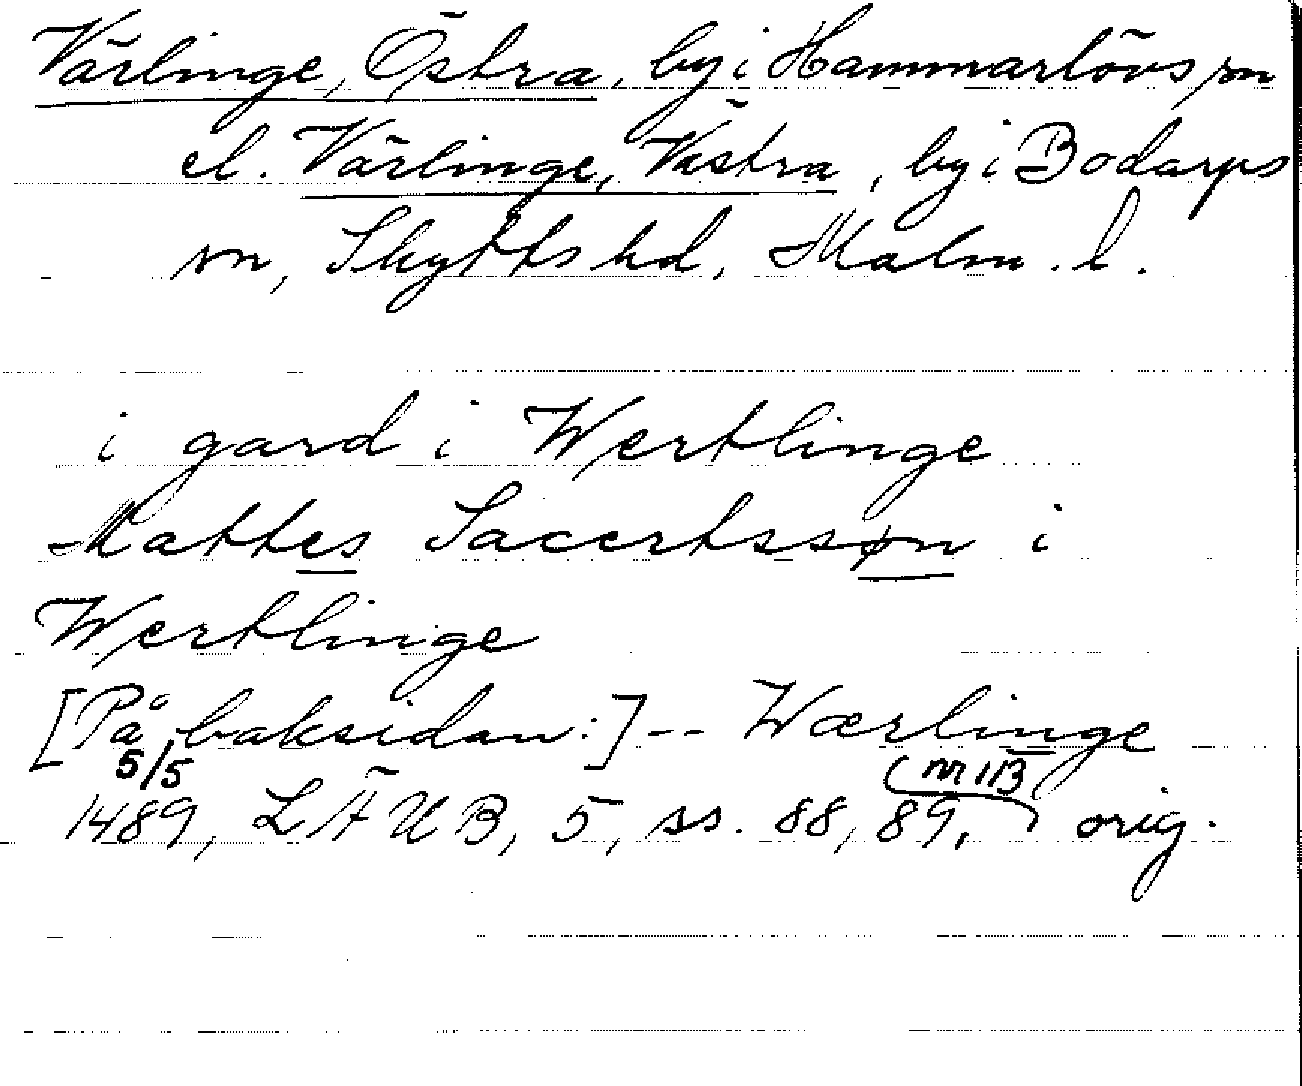 Värlinge, Östra, by i Hammarlövs sn
el. Värlinge, Västra, by i Bodarps
sn, Skytts hd, Malm. l.
i gard i Wertlinge
Mattes Sacertssøn i
Wertlinge
[På baksidan:] -- Wærlinge
5/5
1489, LÄUB, 5, ss. 88, 89, orig.